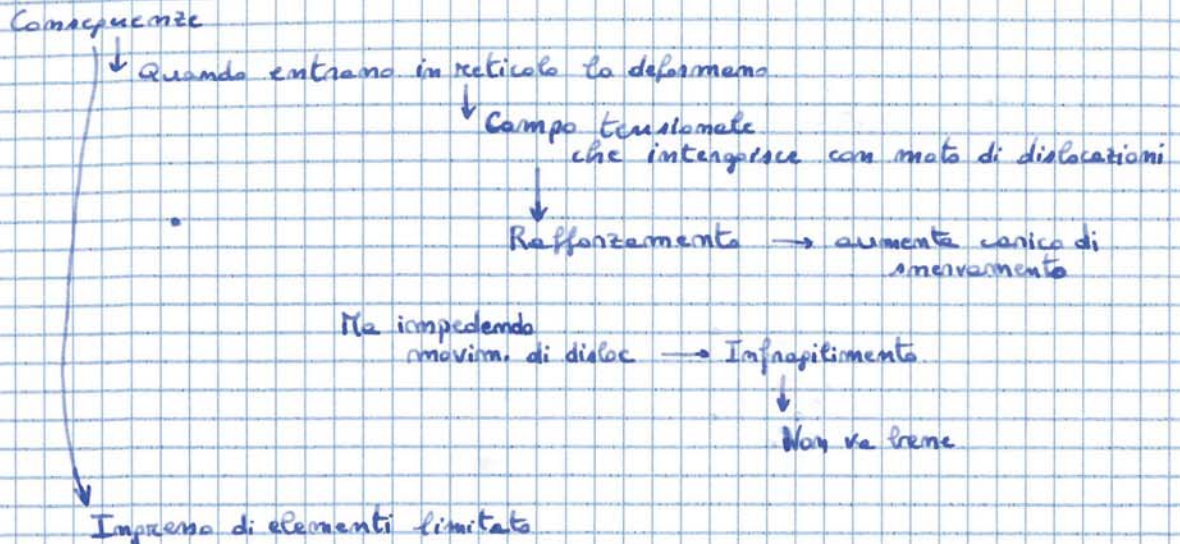 Conseguenze
↓ Quando entrano in reticolo lo deformano
↓ Campo tensionale
che interagisce con moto di dislocazioni
↓
Rafforzamento → aumenta carico di
snervamento
Ma impedendo
movim. di disloc → Infragilimento
↓
Non va bene
Ingresso di elementi limitato